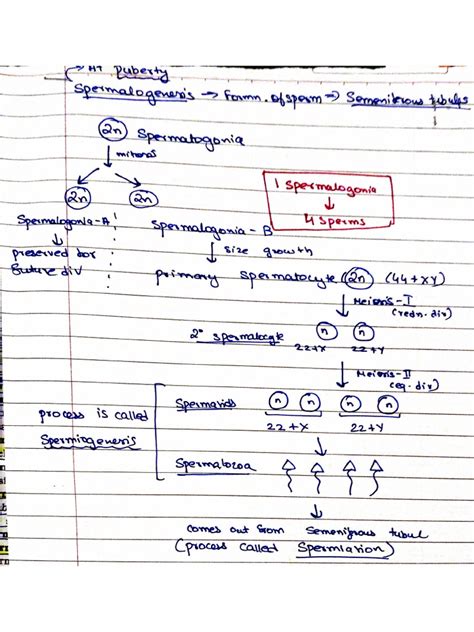 → At puberty
Spermatogenesis → Formn. of sperm → Semenitrous tubules
2n Spermatogonia
↓ mitosis
2n 2n
1 Spermatogonia
↓
4 Sperms
Spermatogonia-A Spermatogonia-B
↓ ↓ size growth
preserved for future div
primary Spermatocyte 2n (44+XY)
↓ Meiosis-I (redn. div)
2° spermatocyte n n
22+X 22+Y
↓ Meiosis-II (eq. div)
Spermatids n n n n
22+X 22+Y
process is called Spermiogenesis
Spermatozoa
↓
comes out from Semenifrous tubul
(process called Spermiation)